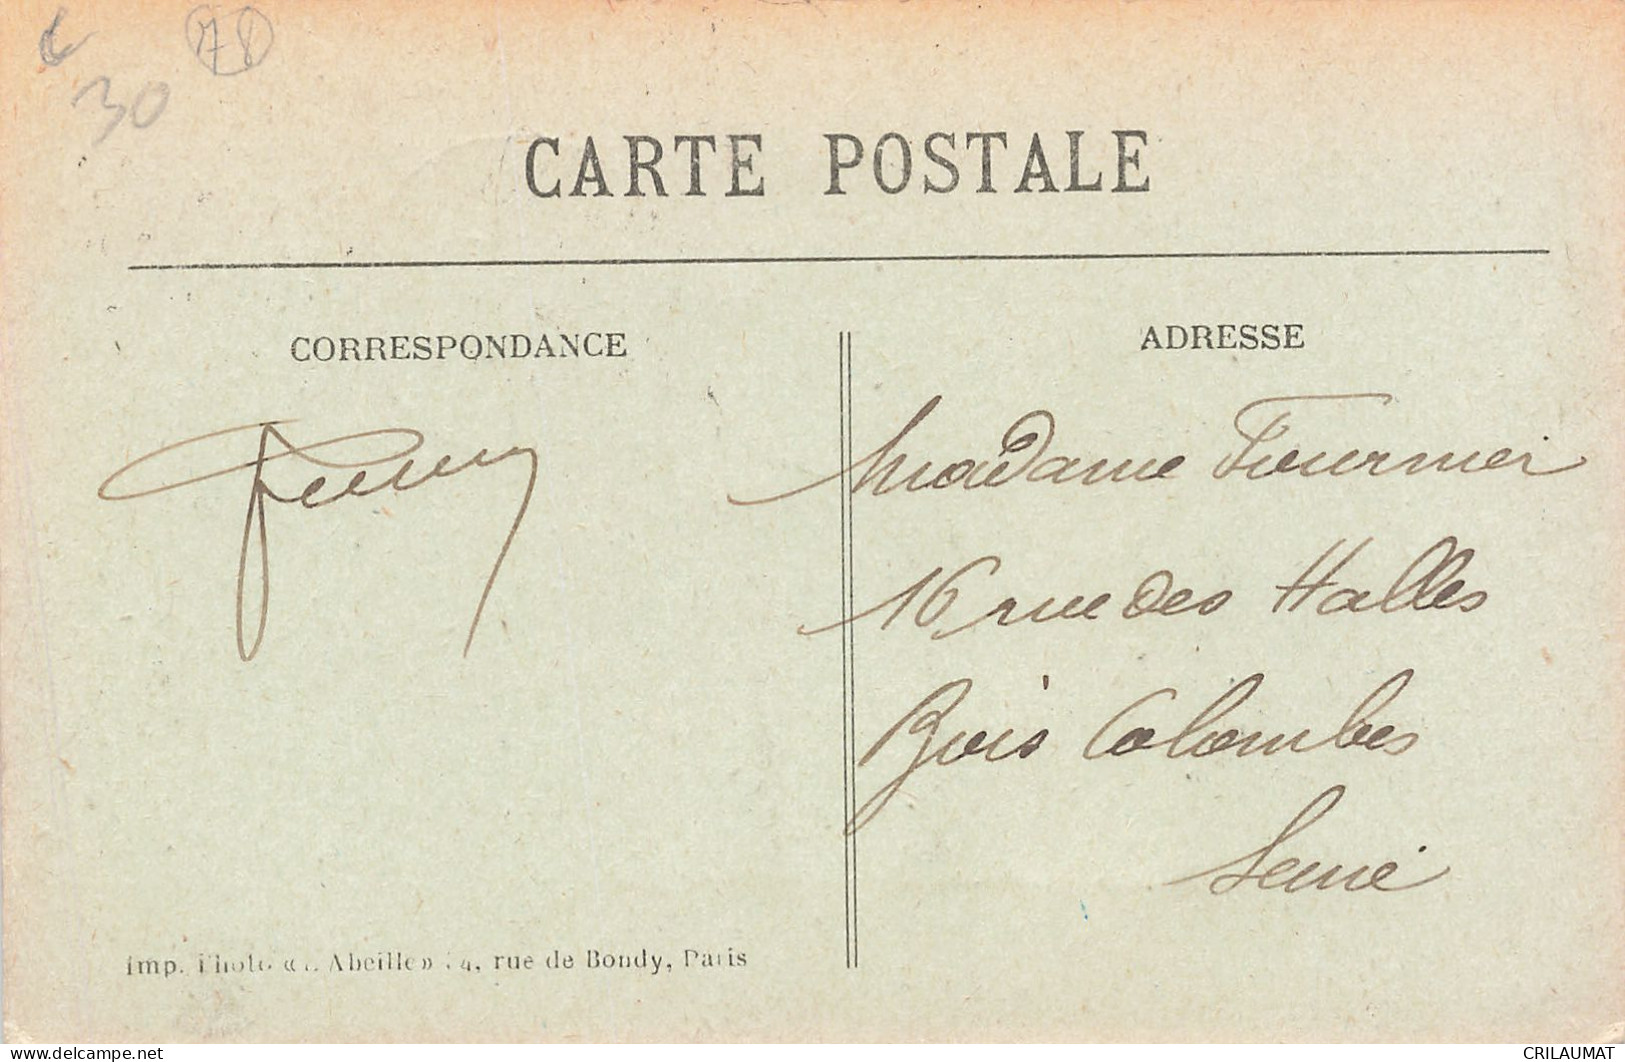 78
30
CARTE POSTALE
CORRESPONDANCE
ADRESSE
Madame Fournier
16 rue des Halles
Bois Colombes
Seine
Imp. Photo « Abeille » rue de Bondy, Paris
CRILAUMAT
delcampe.net